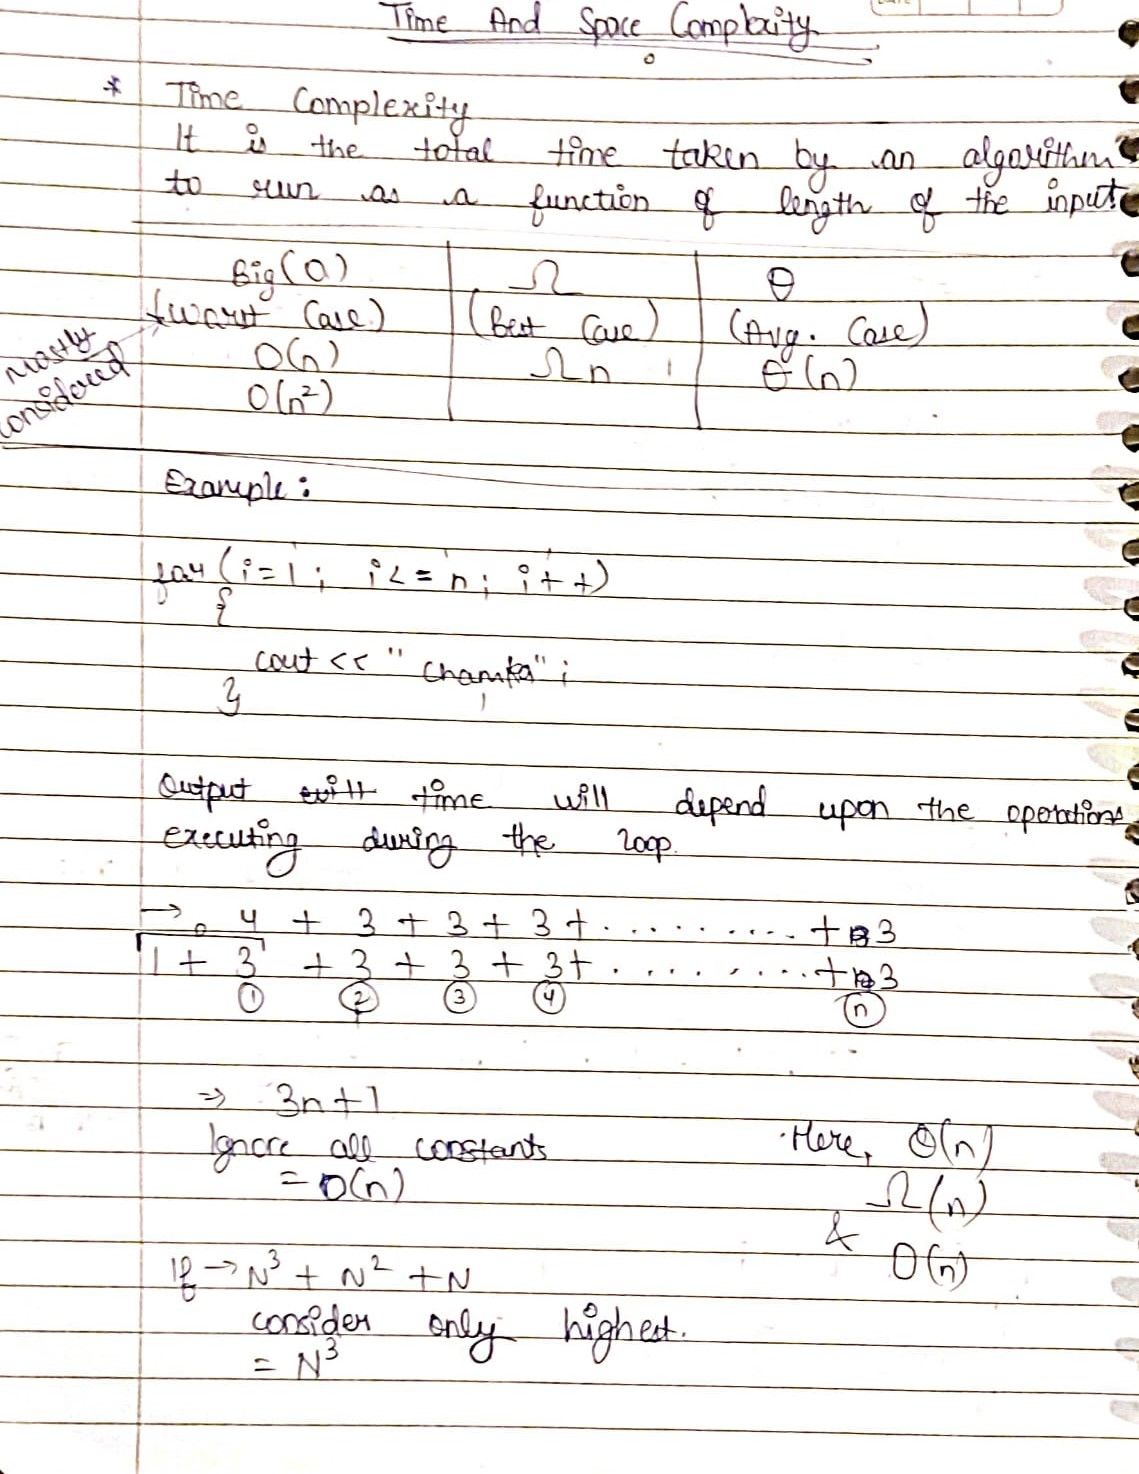 Time And Space Complexity
* Time Complexity
It is the total time taken by an algorithm
to run as a function of length of the input
Big(O) Ω θ
(Worst Case) (Best Case) (Avg. Case)
Mostly considered
O(n) Ωn θ(n)
O(n²)
Example:
for (i=1; i<=n; i++)
{
cout << " ";
}
Output will time will depend upon the operations
executing during the loop.
→ 4 + 3 + 3 + 3+ .......... + 3
1 + 3 + 3 + 3 + 3+ .......... + 3
① ② ③ ④ ⓝ
⇒ 3n+1
Ignore all constants
= O(n)
Here, θ(n)
Ω(n)
& O(n)
If → N³ + N² + N
consider only highest.
= N³